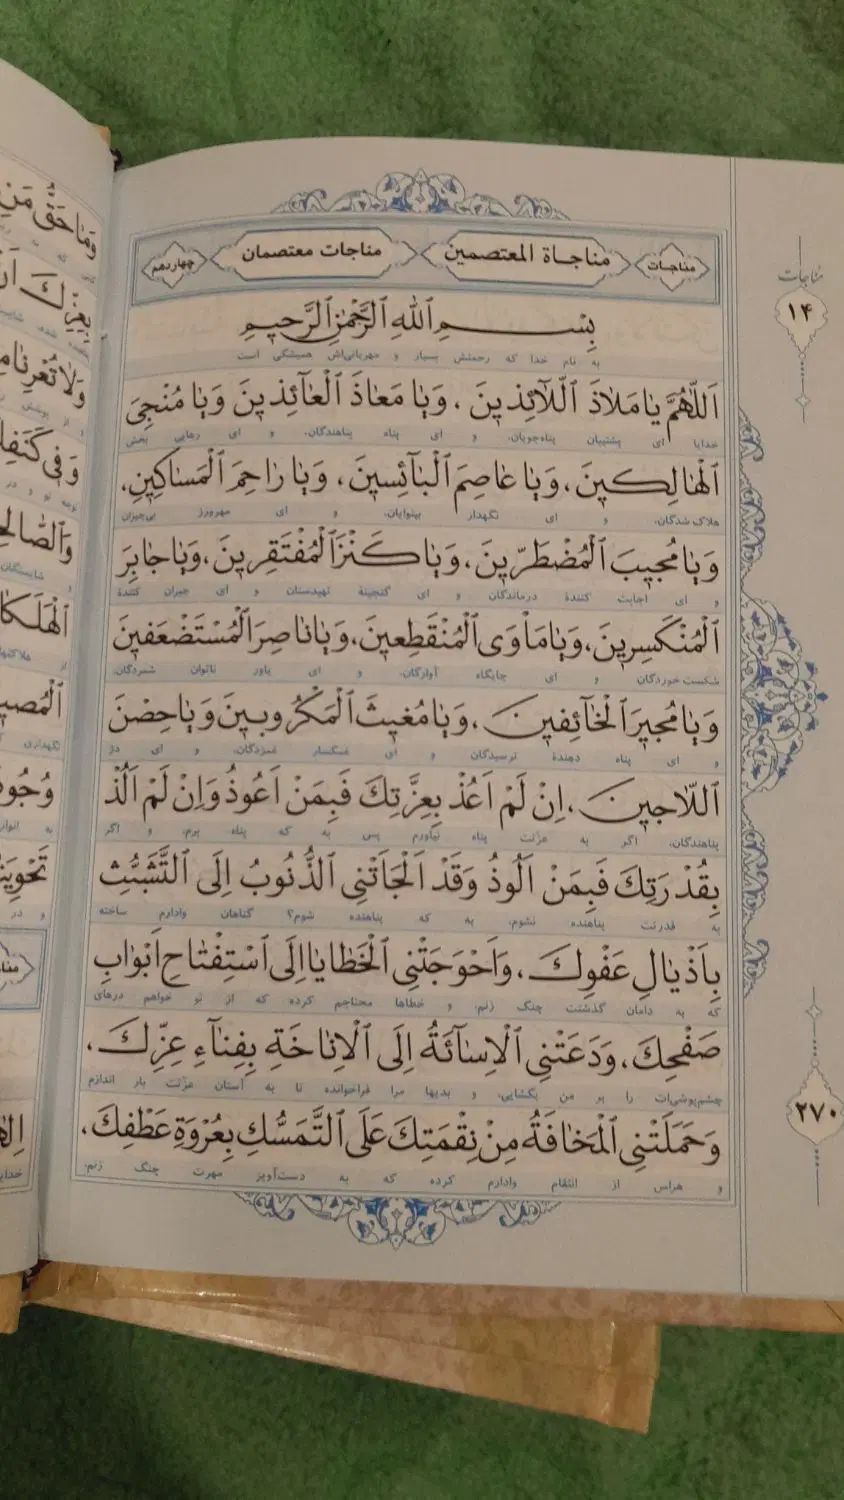 مناجات
مناجاة المعتصمین
مناجات معتصمان
چهاردهم
مناجات
۱۴
بِسْمِ ٱللّٰهِ ٱلرَّحْمٰنِ ٱلرَّحیمِ
به نام خدا که رحمتش بسیار و مهربانی‌اش همیشگی است
اَللّٰهُمَّ یٰا مَلاٰذَ ٱللّٰآئِذینَ ، وَیٰا مَعٰاذَ ٱلْعٰآئِذینَ وَیٰا مُنْجِیَ
خدایا ای پشتیبان پناه‌جویان، و ای پناه پناهندگان، و ای رهایی بخش
ٱلْهٰالِکینَ ، وَیٰا عٰاصِمَ ٱلْبٰآئِسینَ ، وَیٰا رٰاحِمَ ٱلْمَسٰاکینِ،
هلاک شدگان، و ای نگهدار بینوایان، و ای مهرورز بی‌چیزان
وَیٰا مُجیبَ ٱلْمُضْطَرّینَ ، وَیٰا کَنْزَ ٱلْمُفْتَقِرینَ ، وَیٰا جٰابِرَ
و ای اجابت کنندهٔ درماندگان و ای گنجینهٔ تهیدستان و ای جبران کنندهٔ
ٱلْمُنْکَسِرینَ ، وَیٰا مَاْوَی ٱلْمُنْقَطِعینَ، وَیٰا نٰاصِرَ ٱلْمُسْتَضْعَفینَ
شکست خوردگان و ای جایگاه آوارگان، و ای یاور ناتوان شمردگان،
وَیٰا مُجیرَ ٱلْخٰآئِفینَ ، وَیٰا مُغیثَ ٱلْمَکْرُوبینَ وَیٰا حِصْنَ
و ای پناه دهندهٔ ترسیدگان و ای غمگسار غمزدگان، و ای دژ
ٱللّاٰجینَ ، اِنْ لَمْ اَعُذْ بِعِزَّتِکَ فَبِمَنْ اَعُوذُ وَاِنْ لَمْ اَلُذْ
پناهندگان، اگر به عزّتت پناه نیاورم پس به که پناه برم، و اگر
بِقُدْرَتِکَ فَبِمَنْ اَلُوذُ وَقَدْ اَلْجَاَتْنِی ٱلذُّنُوبُ اِلَی ٱلتَّشَبُّثِ
به قدرتت پناهنده نشوم، به که پناهنده شوم؟ گناهان وادارم ساخته
بِاَذْیٰالِ عَفْوِکَ ، وَاَحْوَجَتْنِی ٱلْخَطٰایٰا اِلَی ٱسْتِفْتٰاحِ اَبْوٰابِ
که به دامان گذشتت چنگ زنم، و خطاها محتاجم کرده که از تو خواهم درهای
صَفْحِکَ ، وَدَعَتْنِی ٱلْاِسٰآئَةُ اِلَی ٱلْاِنٰاخَةِ بِفِنٰآءِ عِزِّکَ ،
چشم‌پوشی‌ات را بر من بگشایی، و بدیها مرا فراخوانده تا به آستان عزّتت بار اندازم
وَحَمَلَتْنِی ٱلْمَخٰافَةُ مِنْ نِقْمَتِکَ عَلَی ٱلتَّمَسُّکِ بِعُرْوَةِ عَطْفِکَ ،
و هراس از انتقام وادارم کرده که به دست‌آویز مهرت چنگ زنم،
۲۷۰